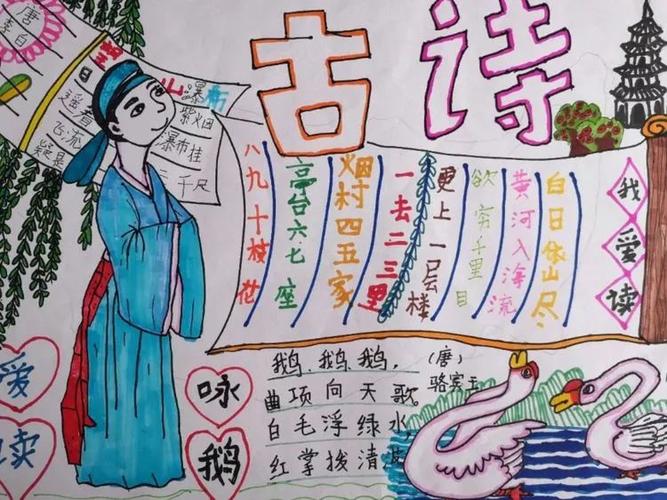 古诗
唐
李白
日
遥看
飞流
疑是
瀑布
紫烟
瀑布挂
三千尺
我爱读
白日依山尽
黄河入海流
欲穷千里目
更上一层楼
一去二三里
烟村四五家
亭台六七座
八九十枝花
爱
读
咏
鹅
鹅、鹅、鹅,
(唐)
骆宾王
曲项向天歌。
白毛浮绿水,
红掌拨清波